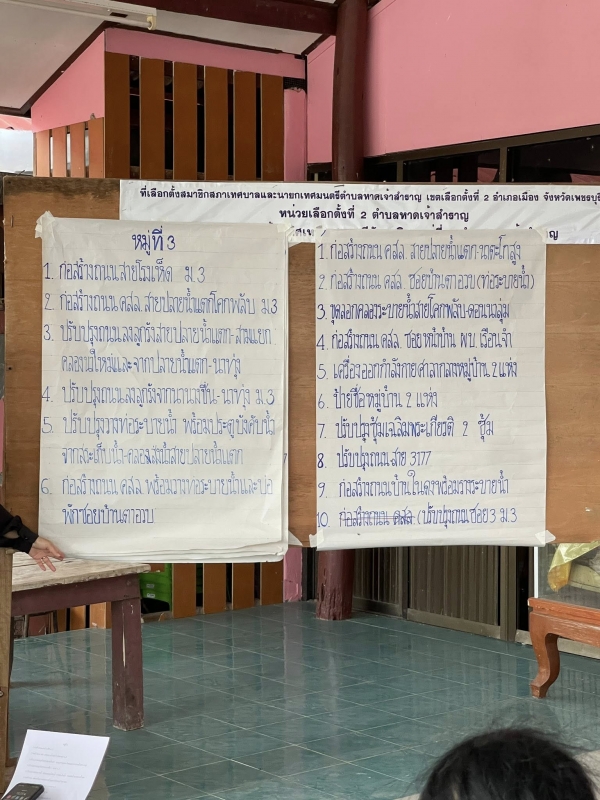 ที่เลือกตั้งสมาชิกสภาเทศบาลและนายกเทศมนตรีตำบลหาดเจ้าสำราญ เขตเลือกตั้งที่ 2 อำเภอเมือง จังหวัดเพชรบุรี
หน่วยเลือกตั้งที่ 2 ตำบลหาดเจ้าสำราญ
หมู่ที่ 3
1. ก่อสร้างถนนสายโรงเห็ด ม.3
2. ก่อสร้างถนน คสล. สายปลายน้ำแตกโคกพลับ ม.3
3. ปรับปรุงถนนลงลูกรังสายปลายน้ำแตก-สามแยก
คลองขุดใหม่และจากปลายน้ำแตก-นาทุ่ง
4. ปรับปรุงถนนลงลูกรังจากนา -นาทุ่ง ม.3
5. ปรับปรุงวางท่อระบายน้ำ พร้อมประตูบังคับน้ำ
จากสระเก็บน้ำ-คลองส่งน้ำสายปลายน้ำแตก
6. ก่อสร้างถนน คสล. พร้อมวางท่อระบายน้ำและบ่อ
พักซอยบ้านตาอวบ
1. ก่อสร้างถนน คสล. สายปลายน้ำแตก-
2. ก่อสร้างถนน คสล. ซอยบ้านตาอวบ (ท่อระบายน้ำ)
3. ขุดลอกคลองระบายน้ำสายโคกพลับ-ดอนกลุ่ม
4. ก่อสร้างถนน คสล. ซอยหน้าบ้าน พบ. เรือนจำ
5. เครื่องออกกำลังกายศาลากลางหมู่บ้าน 2 แห่ง
6. ป้ายชื่อหมู่บ้าน 2 แห่ง
7. ปรับปรุงซุ้มเฉลิมพระเกียรติ 2 ซุ้ม
8. ปรับปรุงถนนสาย 3177
9. ก่อสร้างถนนบ้านในดงพร้อมรางระบายน้ำ
10. ก่อสร้างถนน คสล. (ปรับปรุงถนนซอย 3 ม.3